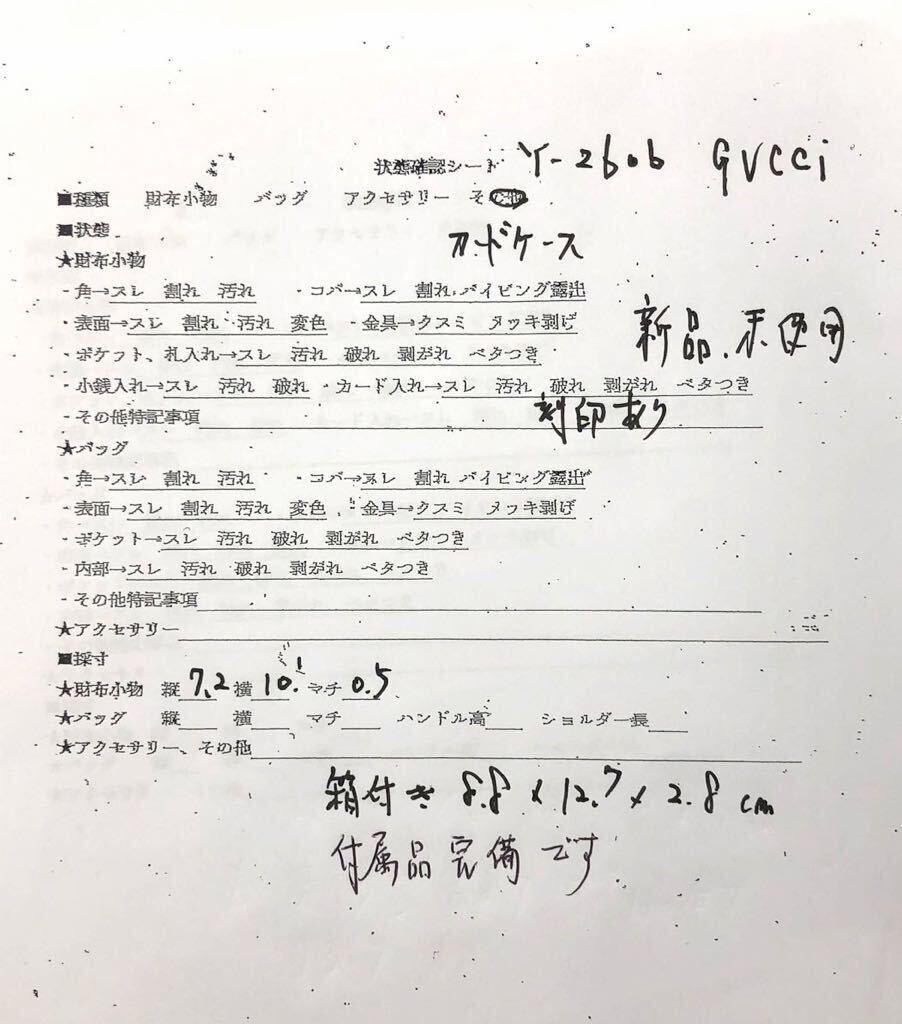 状態確認シート Y-2606 GUCCi
■種類 財布小物 バッグ アクセサリー その他
■状態 カードケース
★財布小物
・角→スレ 割れ 汚れ ・コバ→スレ 割れ パイピング露出
・表面→スレ 割れ 汚れ 変色 ・金具→クスミ メッキ剥げ 新品、未使用
・ポケット、札入れ→スレ 汚れ 破れ 剥がれ ベタつき
・小銭入れ→スレ 汚れ 破れ ・カード入れ→スレ 汚れ 破れ 剥がれ ベタつき
・その他特記事項 刻印あり
★バッグ
・角→スレ 割れ 汚れ ・コバ→スレ 割れ パイピング露出
・表面→スレ 割れ 汚れ 変色 ・金具→クスミ メッキ剥げ
・ポケット→スレ 汚れ 破れ 剥がれ ベタつき
・内部→スレ 汚れ 破れ 剥がれ ベタつき
・その他特記事項
★アクセサリー
■採寸
★財布小物 縦 7.2 横 10.1 マチ 0.5
★バッグ 縦 横 マチ ハンドル高 ショルダー長
★アクセサリー、その他
箱付き 8.8 x 12.7 x 2.8 cm
付属品完備です